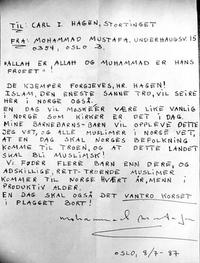 TIL: CARL I. HAGEN, STORTINGET
FRA: MOHAMMAD MUSTAFA, UNDERHAUGSV 15
0354, OSLO 3.
«ALLAH ER ALLAH OG MUHAMMAD ER HANS
PROFET»!
DE KJEMPER FORGJEVES, HR. HAGEN!
ISLAM, DEN ENESTE SANNE TRO, VIL SEIRE
HER I NORGE OGSÅ.
EN DAG VIL MOSKEER VÆRE LIKE VANLIG
I NORGE SOM KIRKER ER DET I DAG.
MINE BARNEBARNS-BARN VIL OPPLEVE DETTE
JEG VET, OG ALLE MUSLIMER I NORGE VET,
AT EN DAG SKAL NORGES BEFOLKNING
KOMME TIL TROEN, OG AT DETTE LANDET
SKAL BLI MUSLIMSK!
VI FØDER FLERE BARN ENN DERE, OG
ADSKILLIGE, RETT-TROENDE MUSLIMER
KOMMER TIL NORGE HVERT ÅR, MENN I
PRODUKTIV ALDER.
EN DAG SKAL OGSÅ DET VANTRO KORSET
I FLAGGET BORT!
Mohammad Mustafa
OSLO, 8/7-87